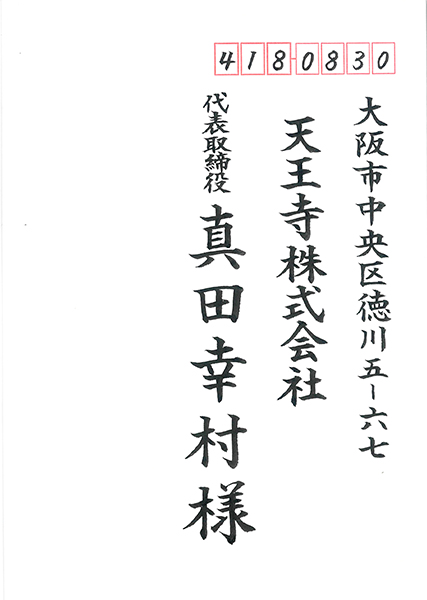 418-0830
大阪市中央区徳川五-六七
天王寺株式会社
代表取締役 真田幸村様